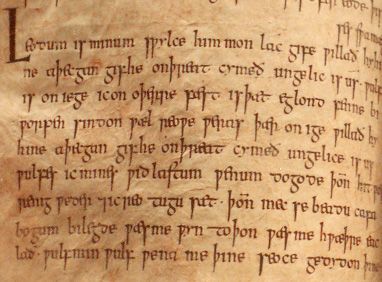 Leodum is minum sƿylce him mon lac gife ƿillað hy hi
ne aþecgan gif he onþreat cymeð ungelic is us. ƿulf
is on iege ic on oþerre fæst is þæt eglond fenne bi
ƿorpen sindon ƿæl reoƿe ƿeras þær on ige ƿillað hy
hine aþecgan gif he onþreat cymeð ungelice is us
ƿulfes ic mines ƿidlastum ƿenum dogode þoñ hit ƿæs
renig ƿeder ⁊ ic reotugu sæt. þoñ mec se beadu cafa
bogum bilegde ƿæs me ƿyn to þon ƿæs me hƿæþre eac
lað. ƿulf min ƿulf ƿena me þine seoce gedydon þine